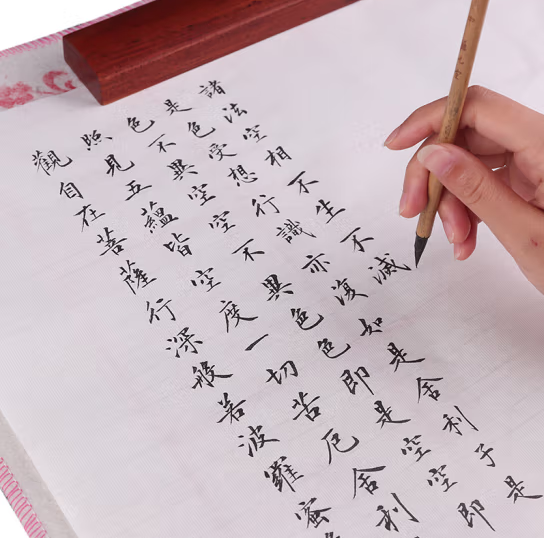 觀自在菩薩行深般若波羅蜜
照見五蘊皆空度一切苦厄舍利
色不異空空不異色色即是空空即
是色受想行識亦復如是舍利子是
諸法空相不生不滅